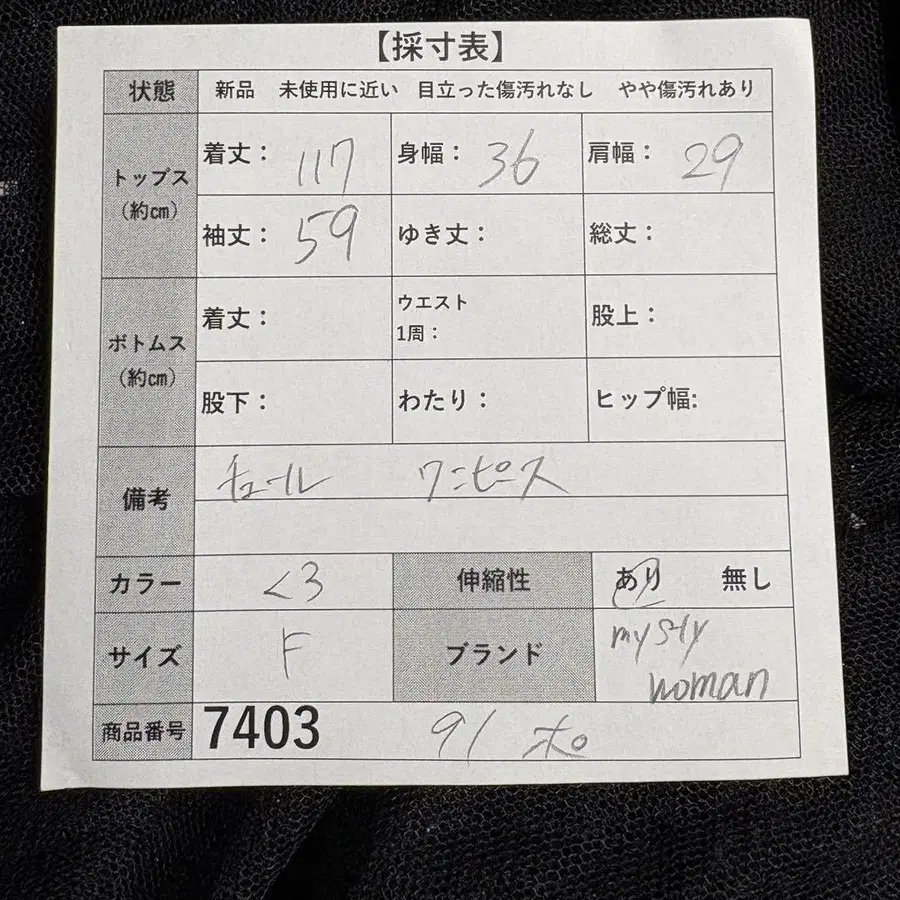 【採寸表】
状態 新品 未使用に近い 目立った傷汚れなし やや傷汚れあり
トップス
(約㎝)
着丈： 117 身幅： 36 肩幅： 29
袖丈： 59 ゆき丈： 総丈：
ボトムス
(約㎝)
着丈： ウエスト
1周： 股上：
股下： わたり： ヒップ幅:
備考 チュール ワンピース
カラー くろ 伸縮性 あり 無し
サイズ F ブランド mysty
woman
商品番号 7403 91 ホ。